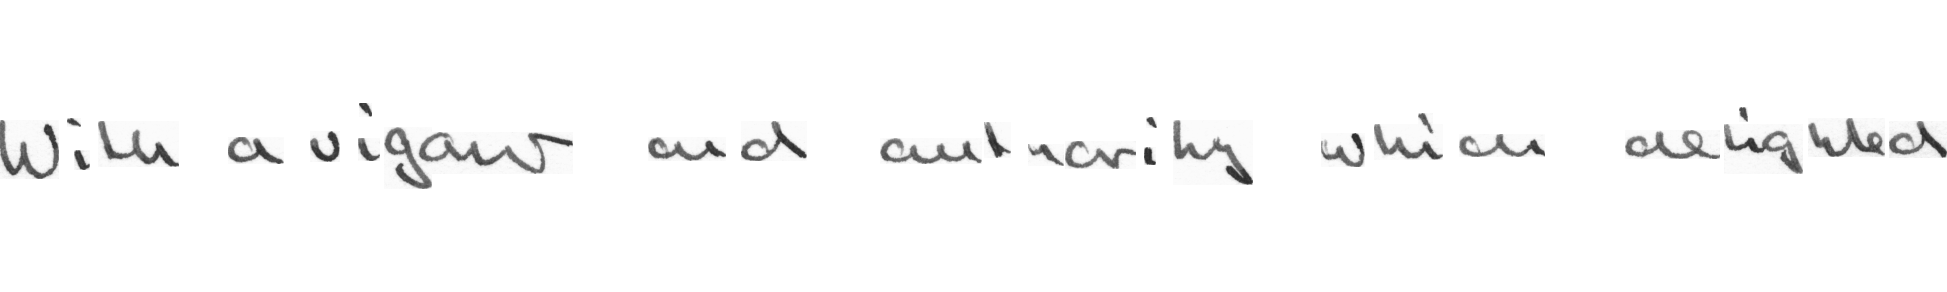 With a vigour and authority which delighted